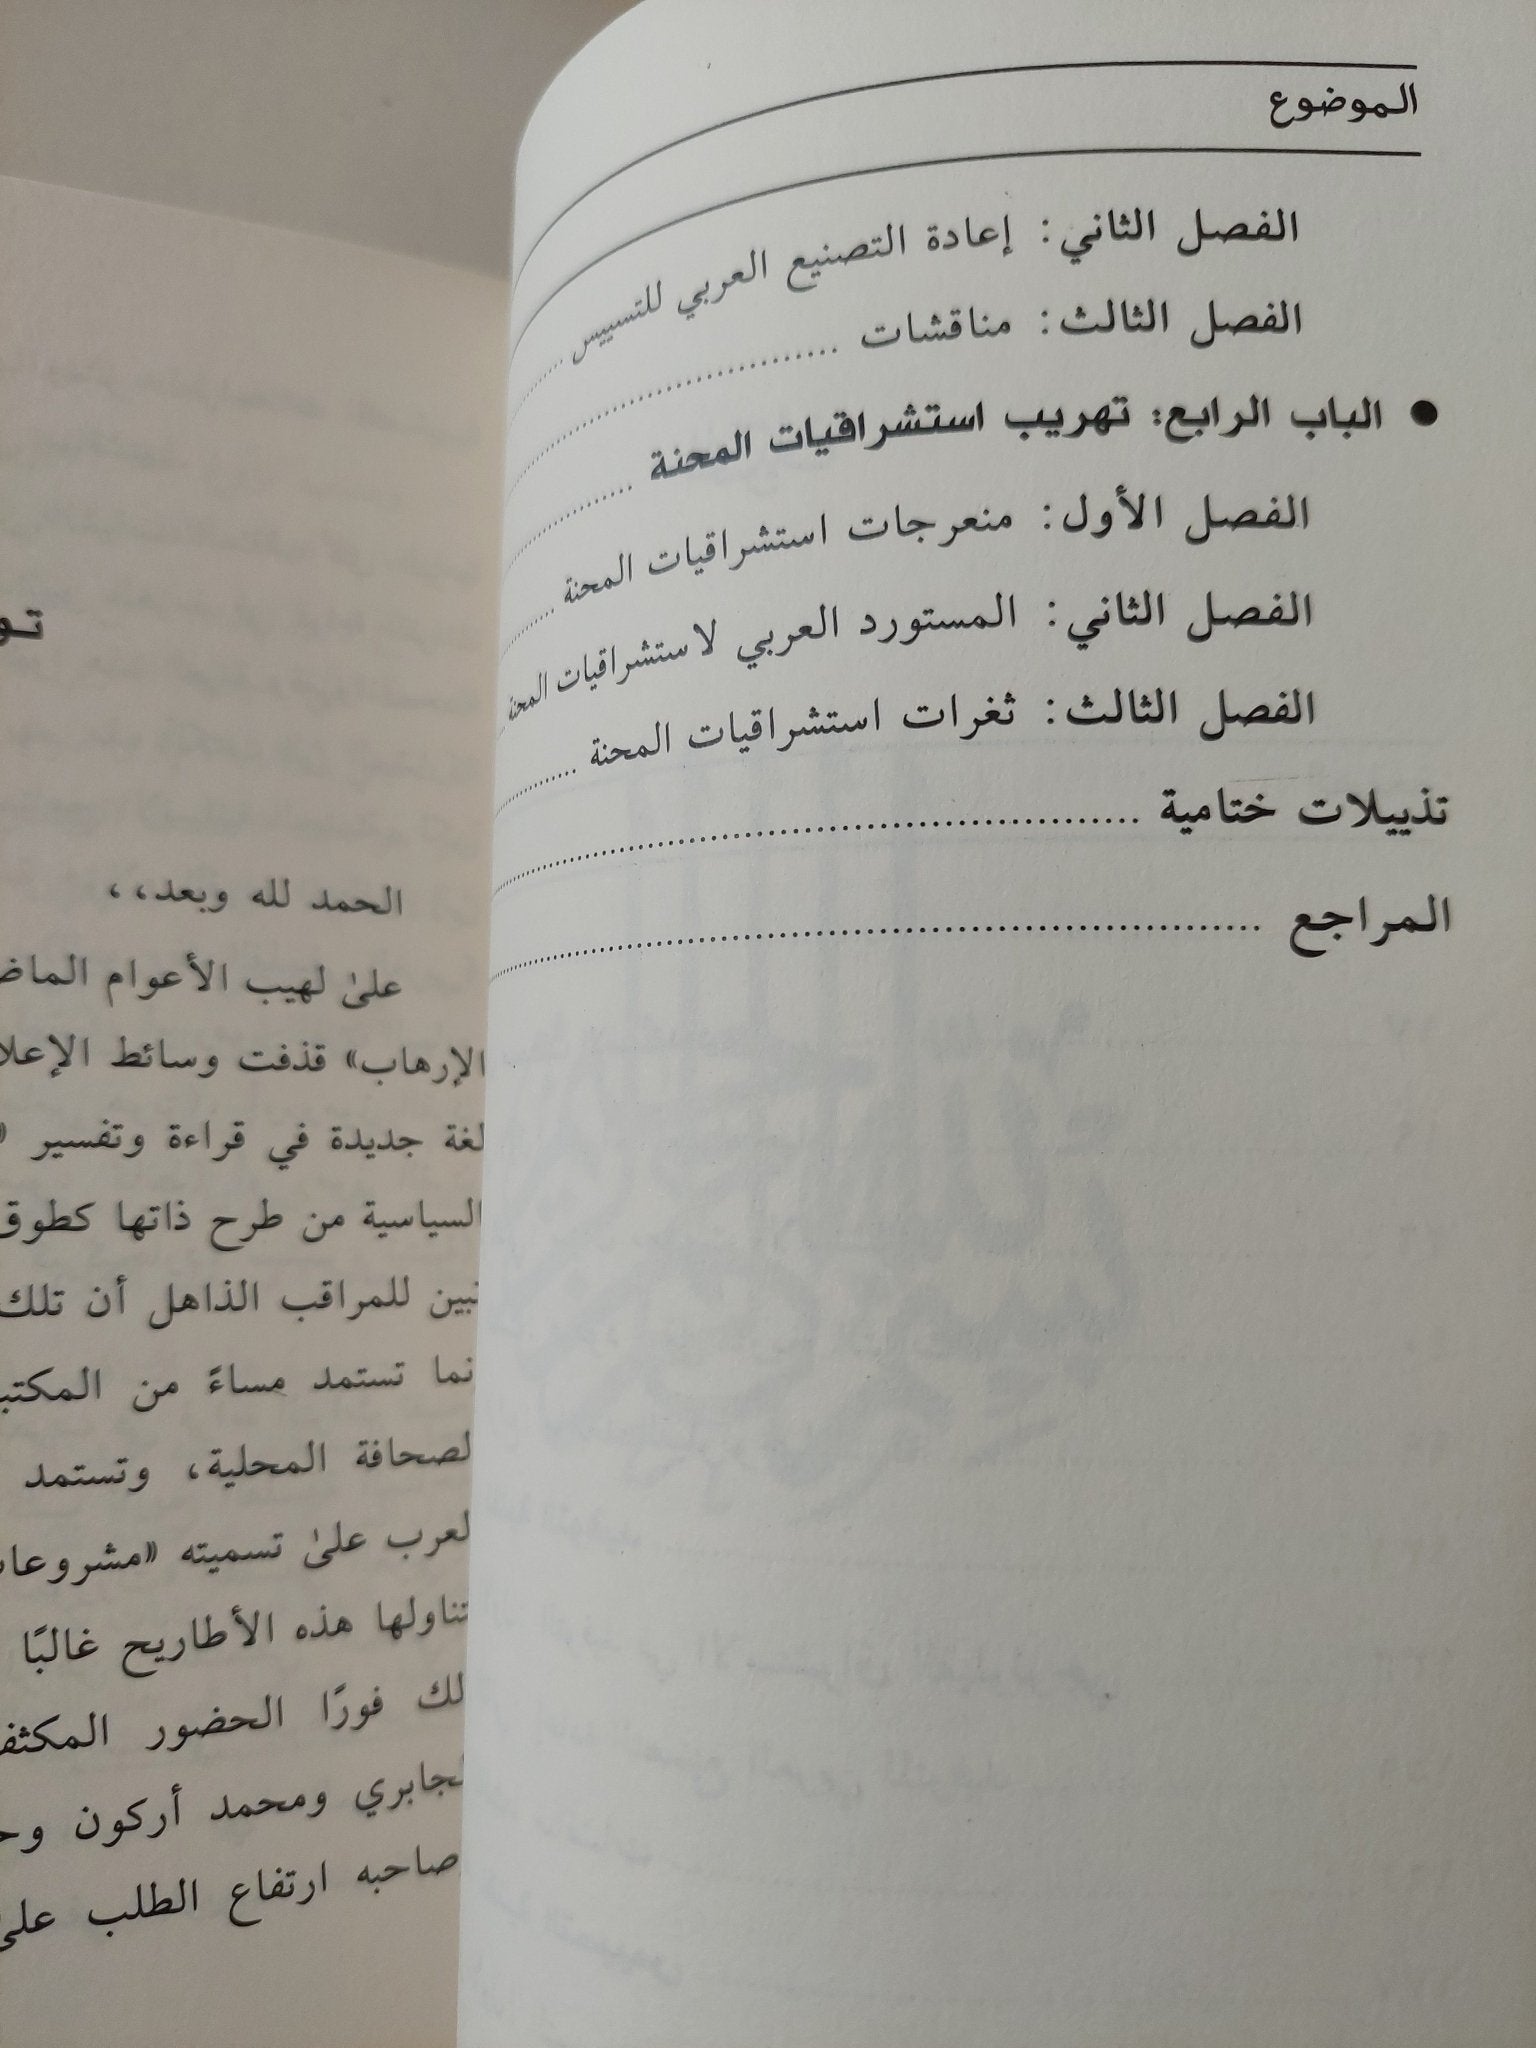 الموضوع
الفصل الثاني: إعادة التصنيع العربي للتسييس
الفصل الثالث: مناقشات
● الباب الرابع: تهريب استشراقيات المحنة
الفصل الأول: منعرجات استشراقيات المحنة
الفصل الثاني: المستورد العربي لاستشراقيات المحنة
الفصل الثالث: ثغرات استشراقيات المحنة
تذييلات ختامية
المراجع
تو
الحمد لله وبعد،،
علىٰ لهيب الأعوام الماض
الإرهاب» قذفت وسائط الإعلا
لغة جديدة في قراءة وتفسير «
السياسية من طرح ذاتها كطوق
تبين للمراقب الذاهل أن تلك
نما تستمد مساءً من المكتب
لصحافة المحلية، وتستمد
لعرب علىٰ تسميته «مشروعا
تناولها هذه الأطاريح غالبًا
لك فورًا الحضور المكثف
لجابري ومحمد أركون وح
صاحبه ارتفاع الطلب علىٰ